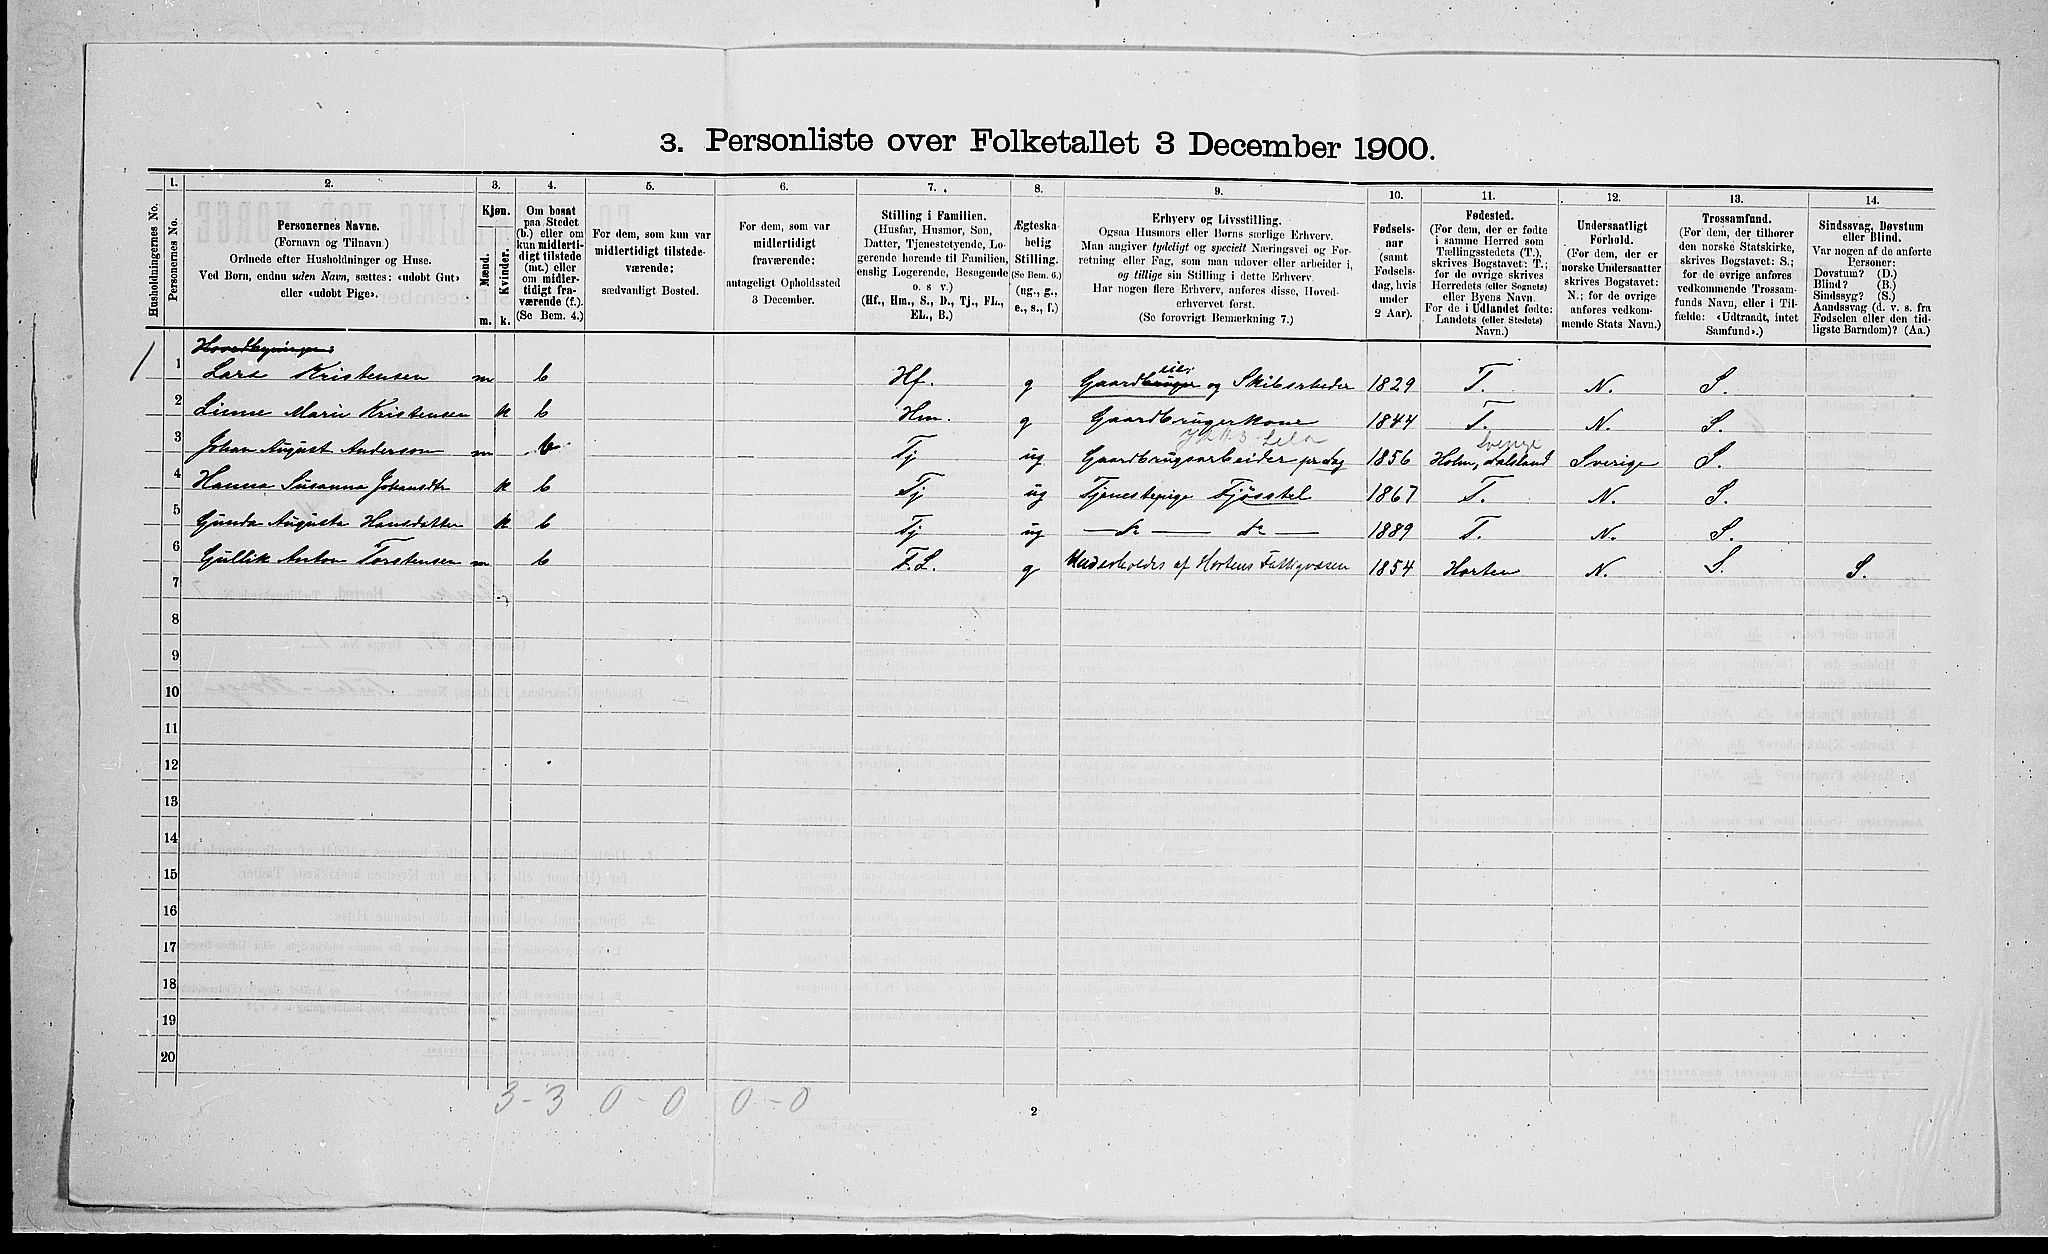 3. Personliste over Folketallet 3 December 1900.
1. 2. 3. 4. 5. 6. 7. 8. 9. 10. 11. 12. 13. 14.
Husholdningernes No.
Personernes No.
Personernes Navne.
(Fornavn og Tilnavn)
Ordnede efter Husholdninger og Huse.
Ved Børn, endnu uden Navn, sættes: «udøbt Gut»
eller «udøbt Pige».
Kjøn.
Mænd. Kvinder.
m. k.
Om bosat
paa Stedet
(b.) eller om
kun midlerti-
digt tilstede
(mt.) eller
om midler-
tidigt fra-
værende (f.).
(Se Bem. 4.)
For dem, som kun var
midlertidigt tilstede-
værende:
sædvanligt Bosted.
For dem, som var
midlertidigt
fraværende:
antageligt Opholdssted
3 December.
Stilling i Familien.
(Husfar, Husmor, Søn,
Datter, Tjenestetyende, Lo-
gerende hørende til Familien,
enslig Logerende, Besøgende
o. s v.)
(Hf., Hm., S., D., Tj., FL.,
EL., B.)
Ægteska-
belig
Stilling.
(Se Bem. 6.)
(ug., g.,
e., s., f.)
Erhverv og Livsstilling.
Ogsaa Husmors eller Børns særlige Erhverv.
Man angiver tydeligt og specielt Næringsvei og For-
retning eller Fag, som man udøver eller arbeider i,
og tillige sin Stilling i dette Erhverv.
Har nogen flere Erhverv, anføres disse, Hoved-
erhvervet først.
(Se forøvrigt Bemærkning 7.)
Fødsels-
aar
(samt
Fødsels-
dag, hvis
under
2 Aar).
Fødested.
(For dem, der er fødte
i samme Herred som
Tællingsstedets (T.),
skrives Bogstavet: T.;
for de øvrige skrives
Herredets (eller Sognets)
eller Byens Navn.
For de i Udlandet fødte:
Landets (eller Stedets)
Navn.)
Undersaatligt
Forhold.
(For dem, der er
norske Undersaatter
skrives Bogstavet:
N.; for de øvrige
anføres vedkom-
mende Stats Navn.)
Trossamfund.
(For dem, der tilhører
den norske Statskirke,
skrives Bogstavet: S.;
for de øvrige anføres
vedkommende Trossam-
funds Navn, eller i Til-
fælde: «Udtraadt, intet
Samfund».)
Sindssvag, Døvstum
eller Blind.
Var nogen af de anførte
Personer:
Døvstum? (D.)
Blind? (B.)
Sindssyg? (S.)
Aandssvag (d. v. s. fra
Fødselen eller den tid-
ligste Barndom)? (Aa.)
Hovedbygningen:
1 1 Lars Kristensen m b Hf. g Gaardbruger eier og Skibsrheder 1829 T. N. S.
2 Linne Marie Kristensen k b Hm. g Gaardbrugerkone 1844 T. N. S.
Sverige
3 Johan August Anderson m b Tj ug Gaardbrugsarbeider pr dag 1856 Holm, Dalsland Sverige S.
4 Hanna Susanna Johansdtr k b Tj ug Tjenestepige Fjøsstel 1867 T. N. S.
5 Gunda Augusta Hansdatter k b Tj ug — do — do — 1889 T. N. S.
6 Gullik Anton Torstensen m b F.L. g Underholdes af Hortens Fattigvæsen 1854 Horten N. S. S.
7
8
9
10
11
12
13
14
15
16
17
18
19
20
3 - 3 0 - 0 0 - 0
2